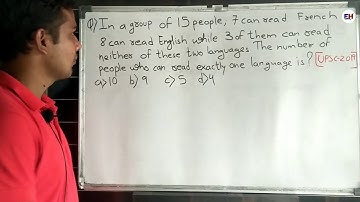 Q) In a group of 15 people, 7 can read French
8 can read English while 3 of them can read
neither of these two languages The number of
people who can read exactly one language is? [UPSC-2011]
a) 10 b) 9 c) 5 d) 4
EH